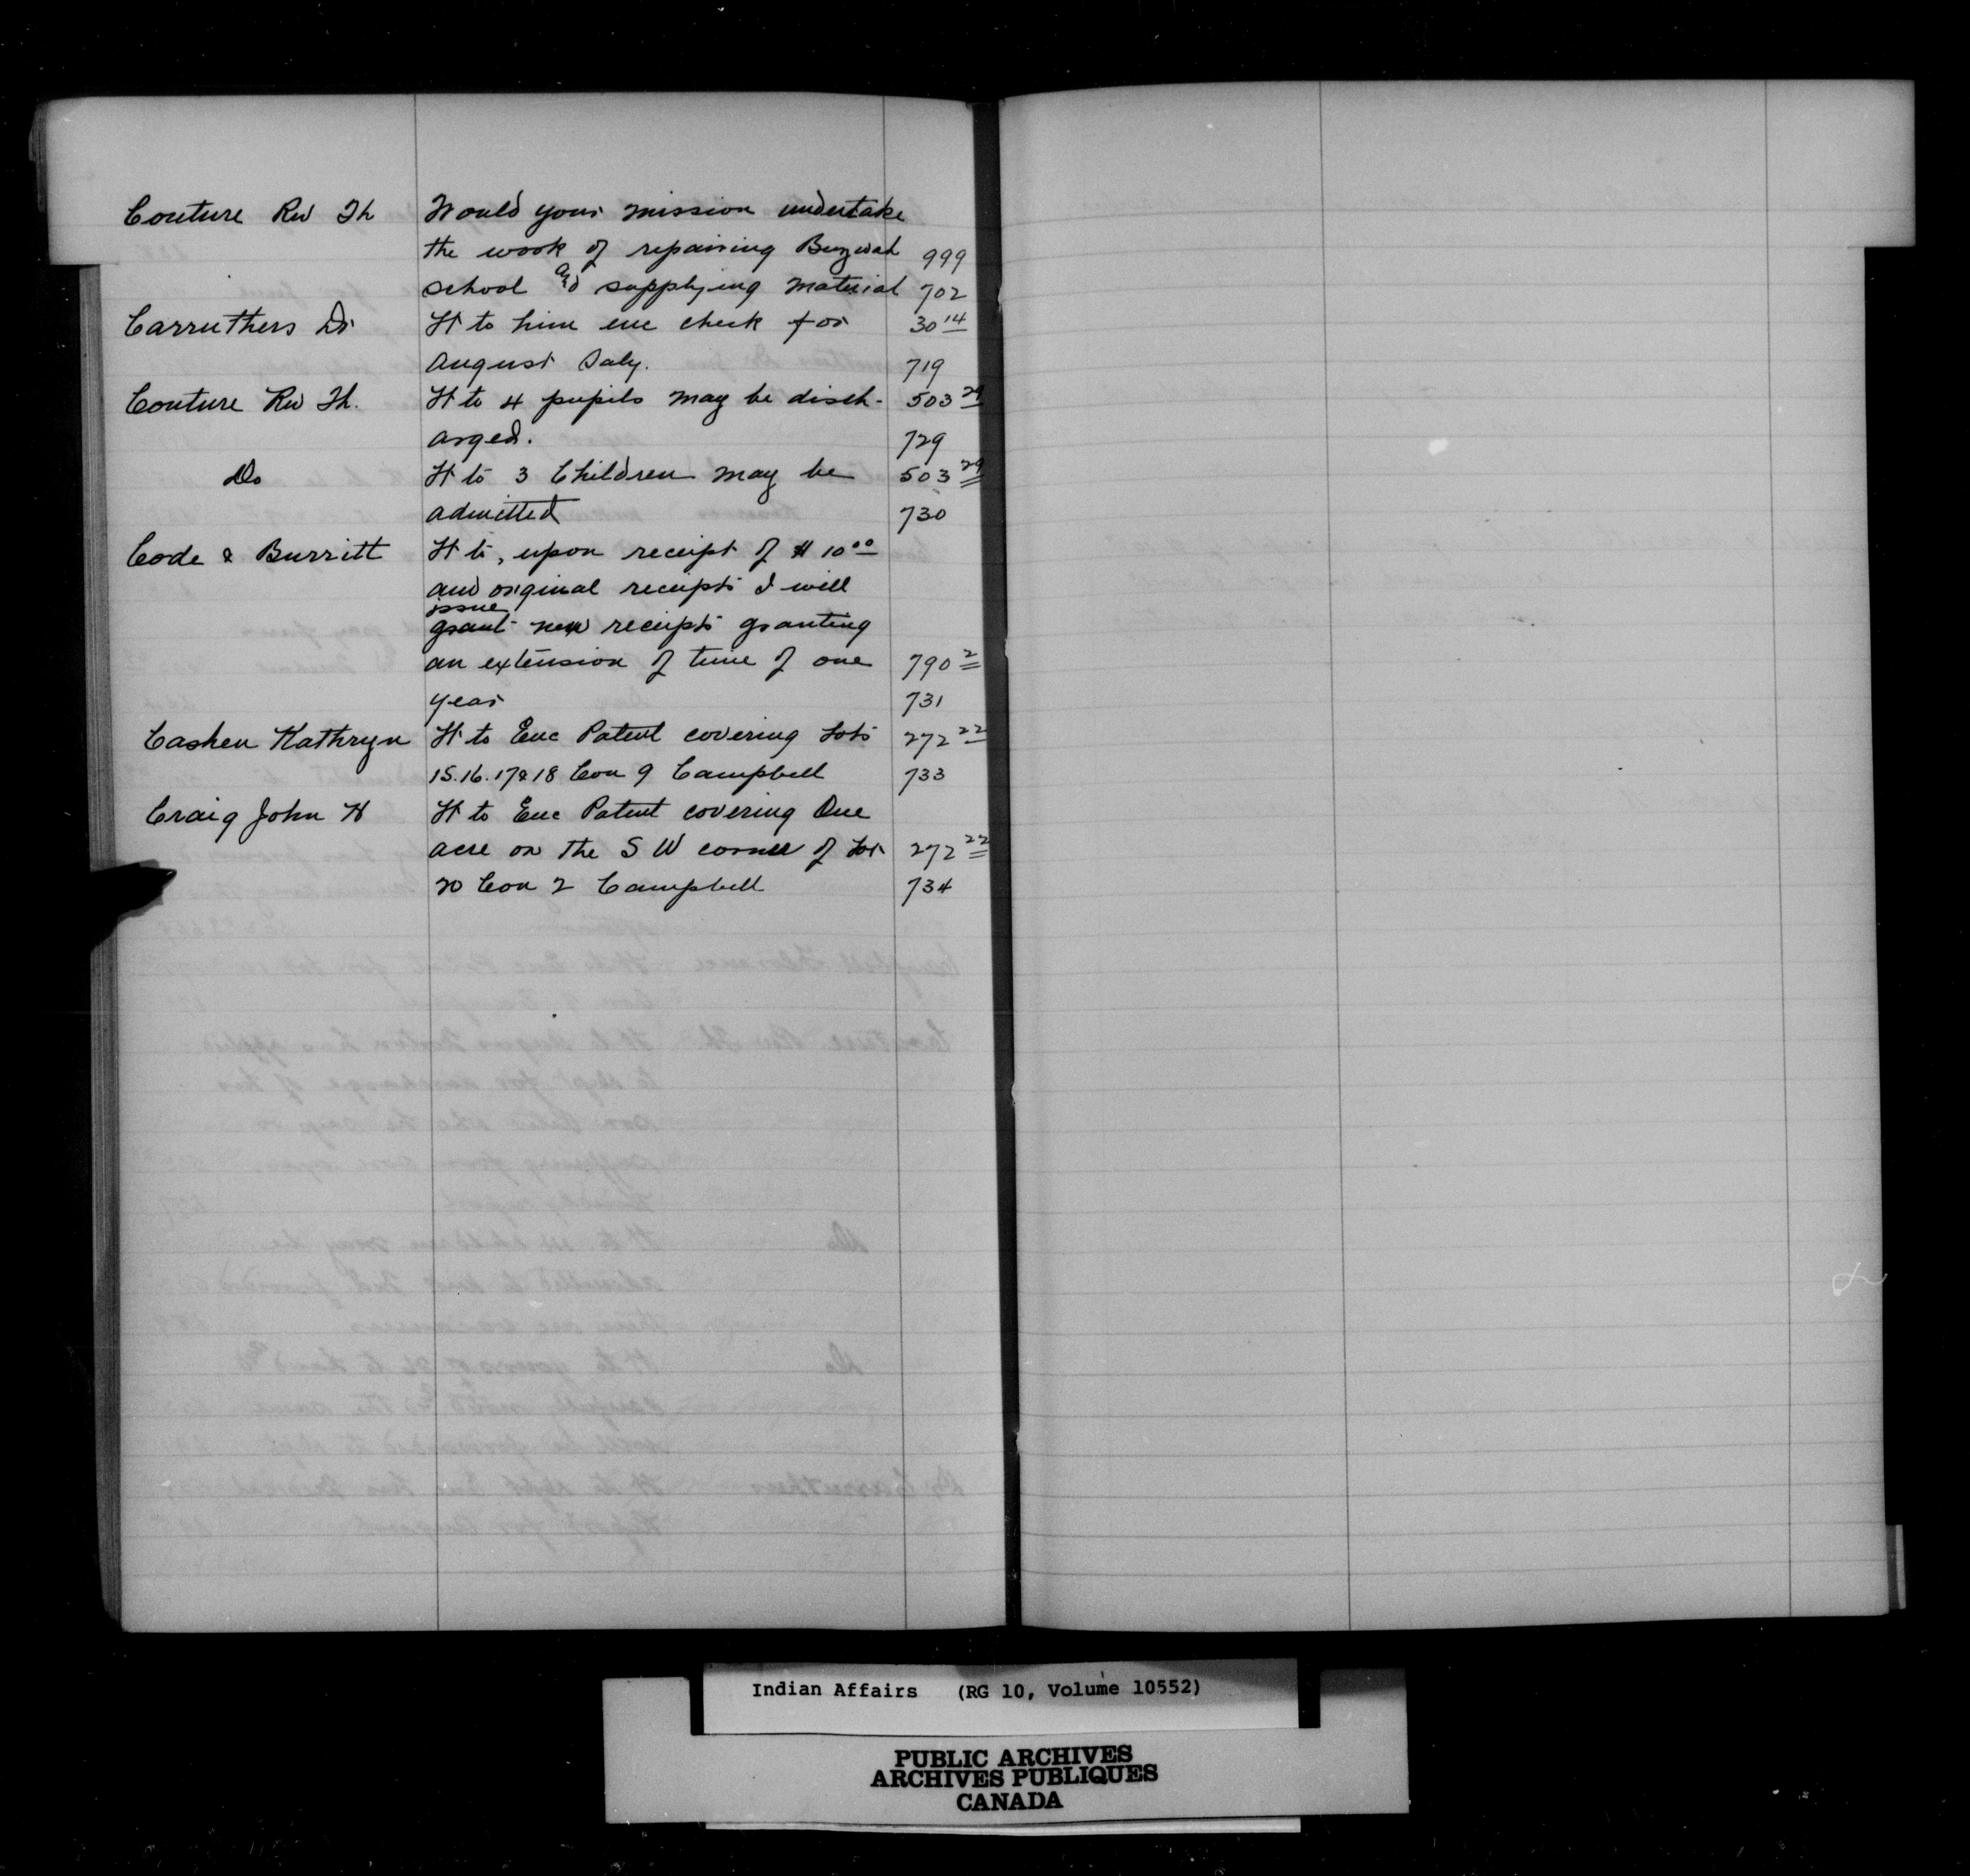 Couture Rev Th Would your mission undertake
the work of repairing Buzwah 999
school and supplying material 702
Carruthers Dr Lt to him enc check for 30 14
August Saly. 719
Couture Rev Th. Lt to 4 pupils may be disch- 503 29
arged. 729
Do Lt to 3 Children may be 503 29
admitted 730
Code & Burritt Lt to, upon receipt of $ 10 00
and original receipts I will
issue
grant new receipts granting
an extension of time of one 790 2
year 731
Cashen Kathryn Lt to Enc Patent covering Lots 272 22
15.16.17 & 18 Con 9 Campbell 733
Craig John H Lt to Enc Patent covering One
acre on the S W corner of Lot 272 22
20 Con 2 Campbell 734
Indian Affairs (RG 10, Volume 10552)
PUBLIC ARCHIVES
ARCHIVES PUBLIQUES
CANADA